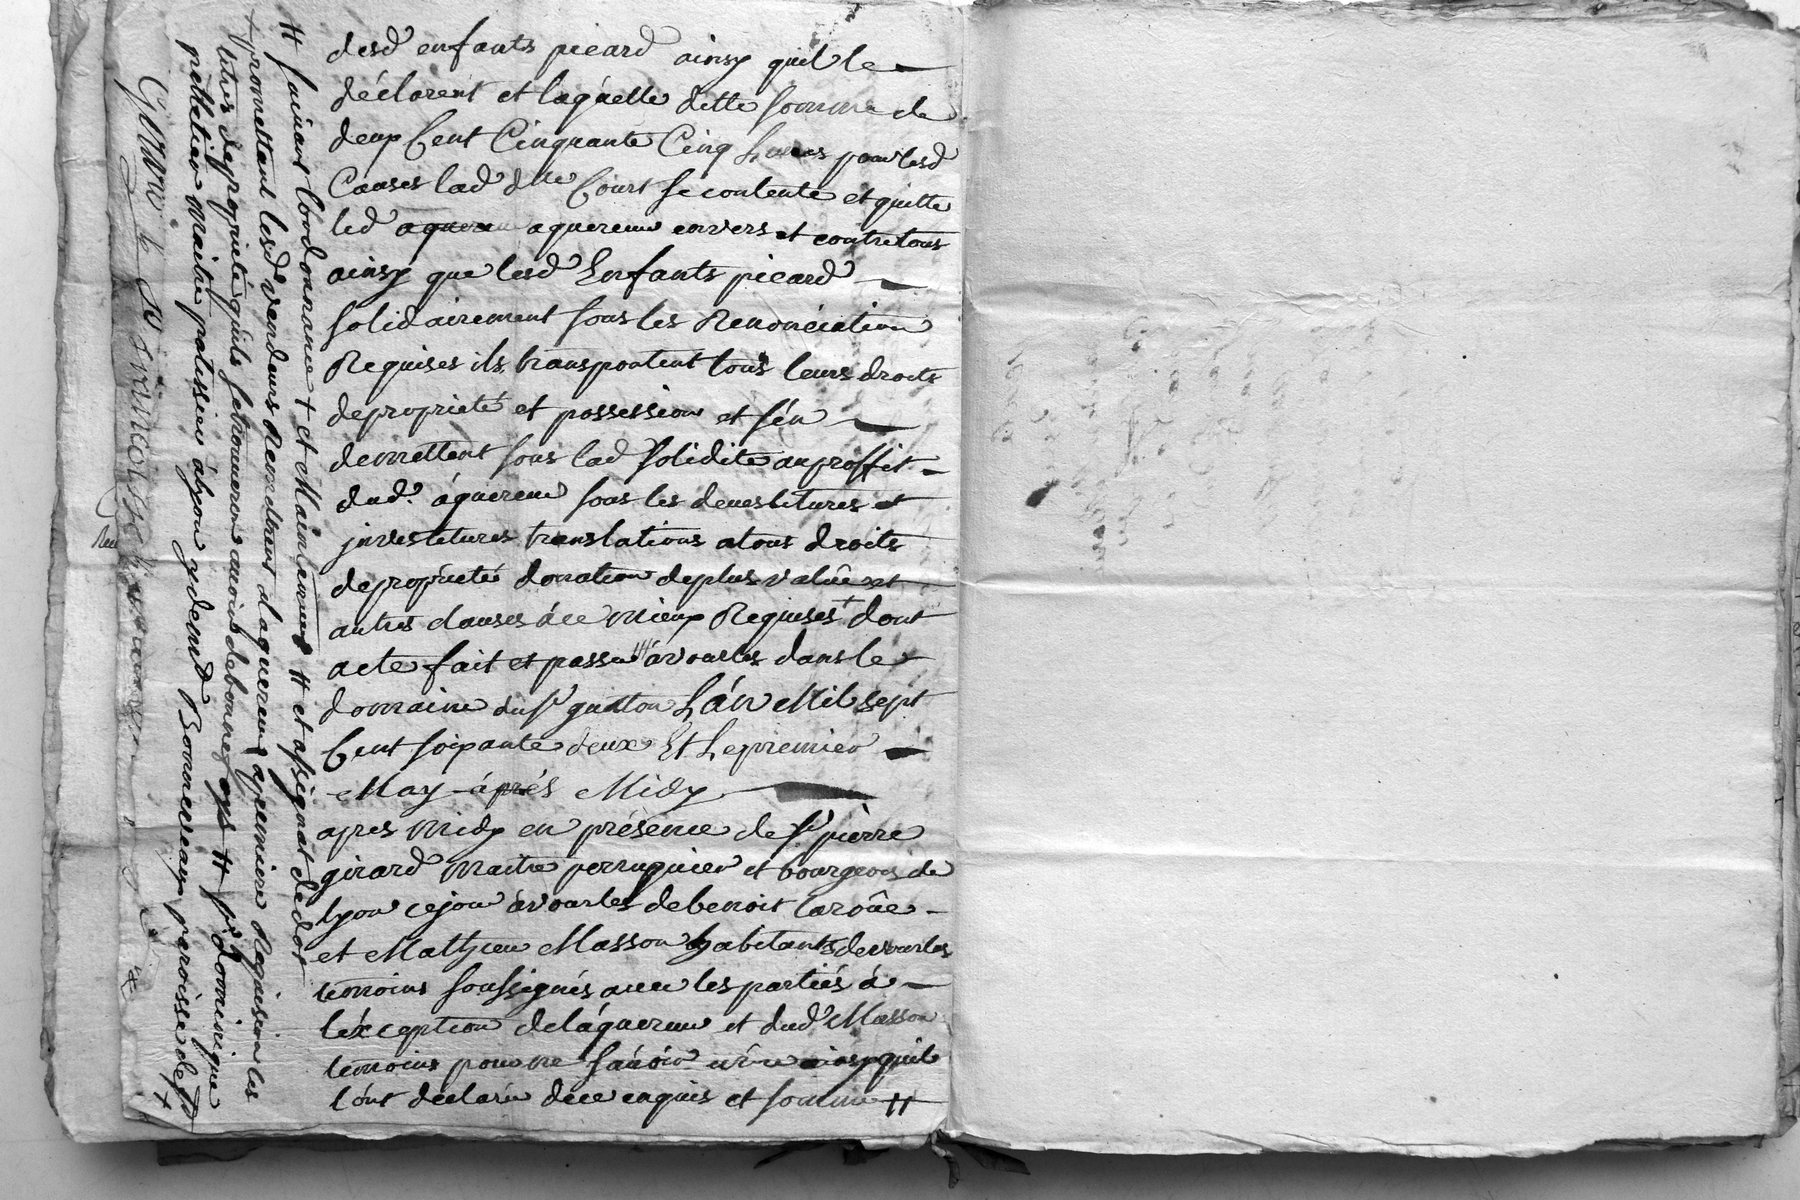 desd enfants picard ainsy quil le
déclarent et laquelle ditte somme de
deux Cent Cinquante Cinq Livres pour lesd
Causes lad dlle Court se contente et quitte
led aquereur envers et contre tous
ainsy que lesd Enfants picard
solidairement sous les Renonciation
Requises ils transportent tous leurs droits
de proprieté et possession et sén
demettent sous lad solidite au proffit
dud. áquereur sous les devestitures et
investitures translations a tous droits
de propriété donation de plus valûe et
autres clauses á ce mieux Requises + dont
acte fait et passé á vourles dans le
domaine du sr guitton Lán Mil sept
Cent soixante deux Et Le premier
May áprés Midy
apres midy en présence de sr pierre
girard maitre perruquier et bourgeois de
lyon ce jour á vourles de benoit laroûe
et Mathieu Masson habitants de vourles
temoins soussignés avec les partiés á
léxception de láquereur et dud Masson
temoins pour ne sávoir ainsy quil
lónt déclaré de ce enquis et sommé #
# suivant lordonnance + et Maintenue # et assignat de dot
+ promettant lesd vendeurs Remettre a laquereur a premiere Requisition les
titres de proprieté quils se trouveron avoir #
pr dominique
maitre patissier á lyon y demt paroisse de St
+